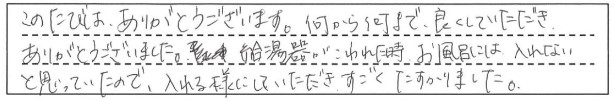 このたびは、ありがとうございます。何から何まで、良くしていただき
ありがとうございました。給湯器がこわれた時、お風呂には入れない
と思っていたので、入れる様にしていただきすごくたすかりました。